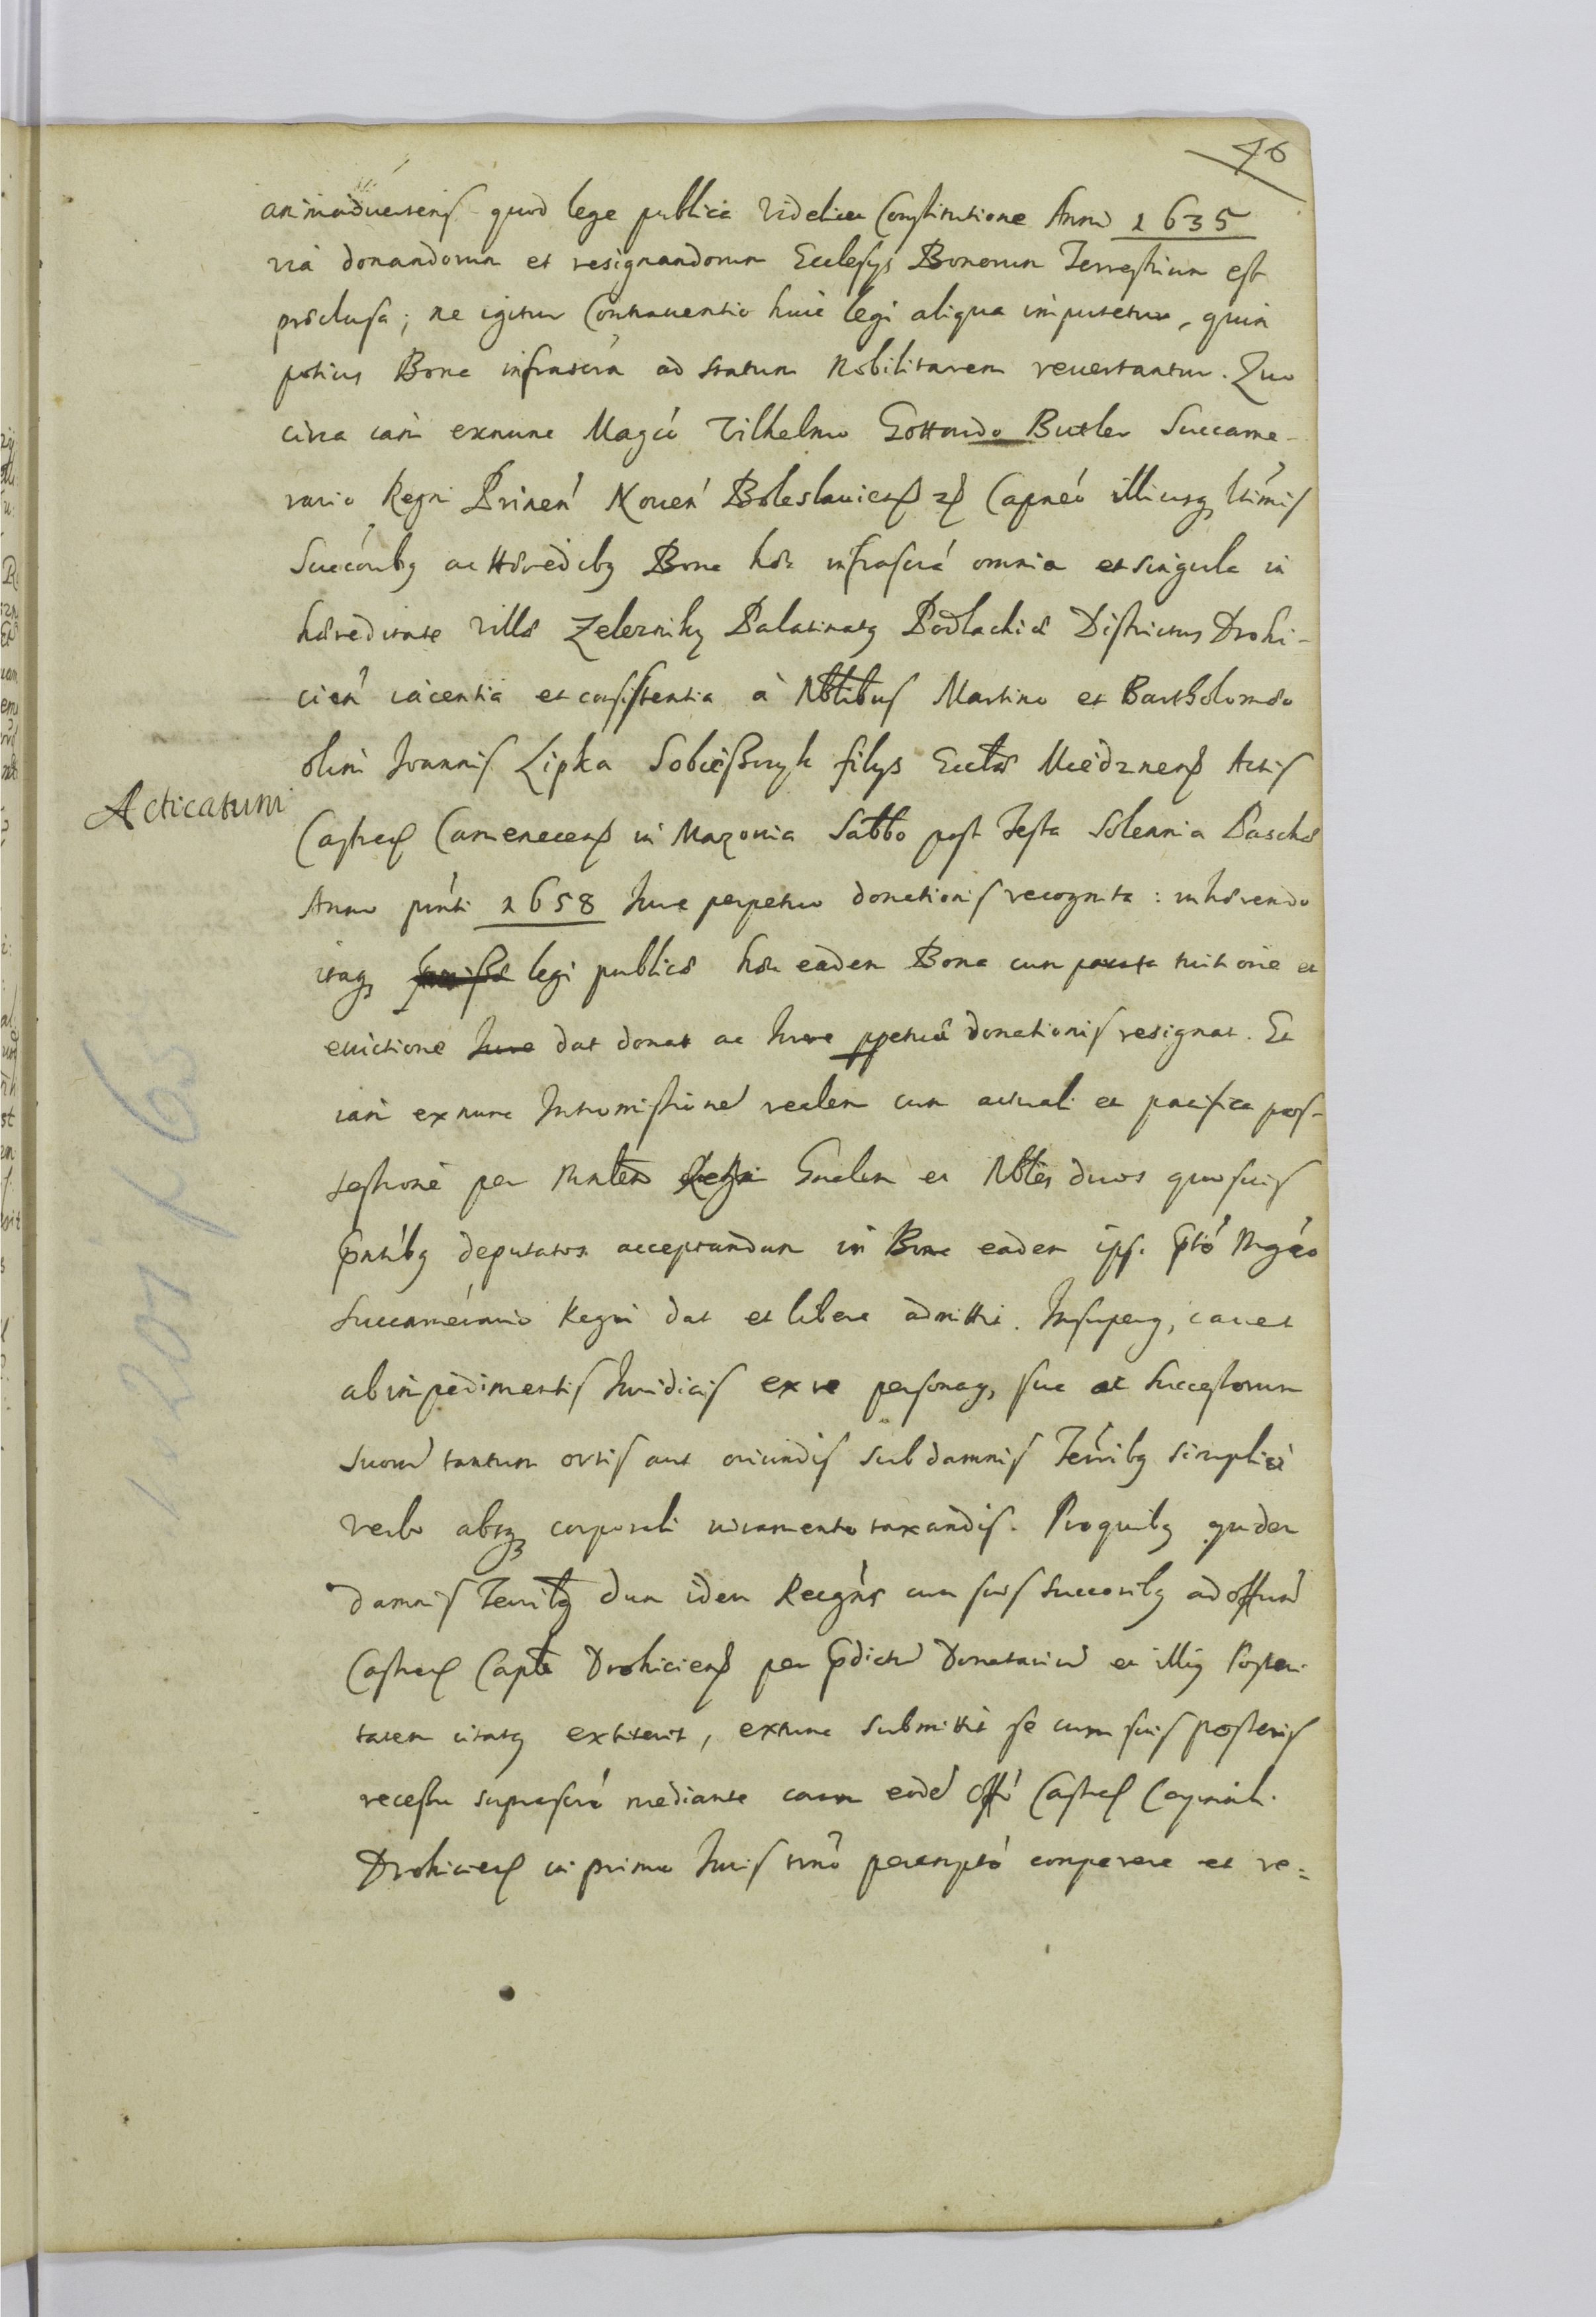 46
animaduertens quod lege publica videlicet Constitutione Anni 1635
via donandorum et resignandorum Ecclesijs Bonorum Terrestrium est
præclusa; ne igitur Contrauentio huic legi aliqua imputetur, quin
potius Bona infrascrá ad statum Nobilitarem reuertantur. Quo
circa iam exnunc Magco Vilhelmo Gottardo Butler Succame-
rario Regni Prinen Nouen Boleslauiens zs Capneó illiusq ltimis
Succóribq ac Hæredibq Bona hæc infrascrá omnia et singula in
hæreditate villæ Zelezniky Palatinatq Podlachiæ Districtus Drohi-
cien iacentia et consistentia à Nbtibus Martino et Bartholomæo
olim Joannis Lipka Sobieszczyk filijs Ecctæ Miedznens Actis
Acticatum
Castrens Camenecens in Mazouia Sabbo post Festa Solennia Paschæ
Anno pnti 1658 Jure perpetuo donationis recognita: inhærendo
itaq legi publicæ hæc eadem Bona cum tuitione et
euictione Jure dat donat ac Jure ppetuæ donationis resignat. Et
iam exnunc Intromissione realem cum actuali et pacifica pos-
sessione per Mntem Gnalem et Nbtes duos quosuis
pntibq deputatos acceptandam in Bona eadem ips. pto Mgco
Succamerario Regni dat et libere admittit. Insuperq, cauet
ab impedimentis Juridicis ex re personaq, sua ac Successorum
suorum tantum ortis aut oriundis sub damnis Terribq simplici
verbo absq corporali iuramento taxandis. Pro quibq quidem
damnis Terribq dum idem Recgns cum suis succoribq ad offum
Castrens Capte Drohiciens per pdictu Donatariu et illiq Posteri-
tatem citatq extiterit, extunc submittit se cum suis posteris
recessu suprascrá mediante coram eode offo Castrens Capinali
Drohiciens in primo Juris tmo peremptó comparere et re=
1 201 K 63